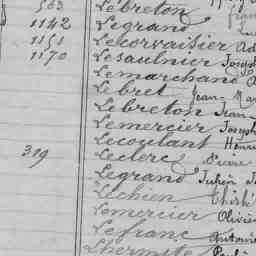 563 Lebreton
1142 Legrand
1151 Lecorvaisier Ad
1170 Lesaulnier Joseph
Lemarchand
Lebret Jean-Mar
Lebreton Jean
Lemercier Joseph
Lecoutant Henri
319 Leclerc Pierre
Legrand Julien
Lechien
Lemercier Olivie
Lefranc Antoine
Lhermite